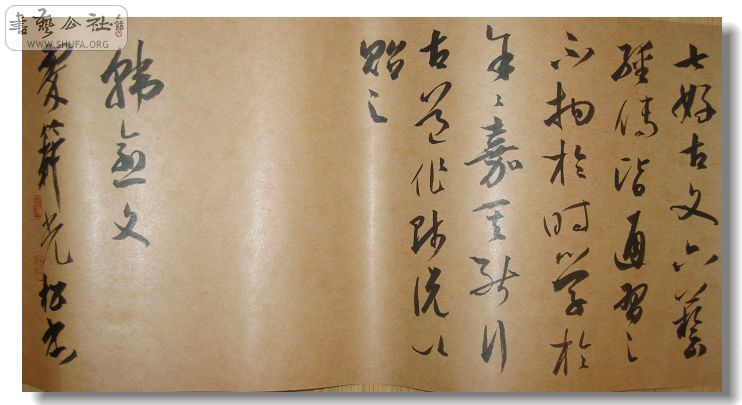 七好古文六藝
經傳皆通習之
不拘於時學於
余々嘉其能行
古道作師說以
貽之
韓愈文
夏薛光書
書藝公社
WWW.SHUFA.ORG